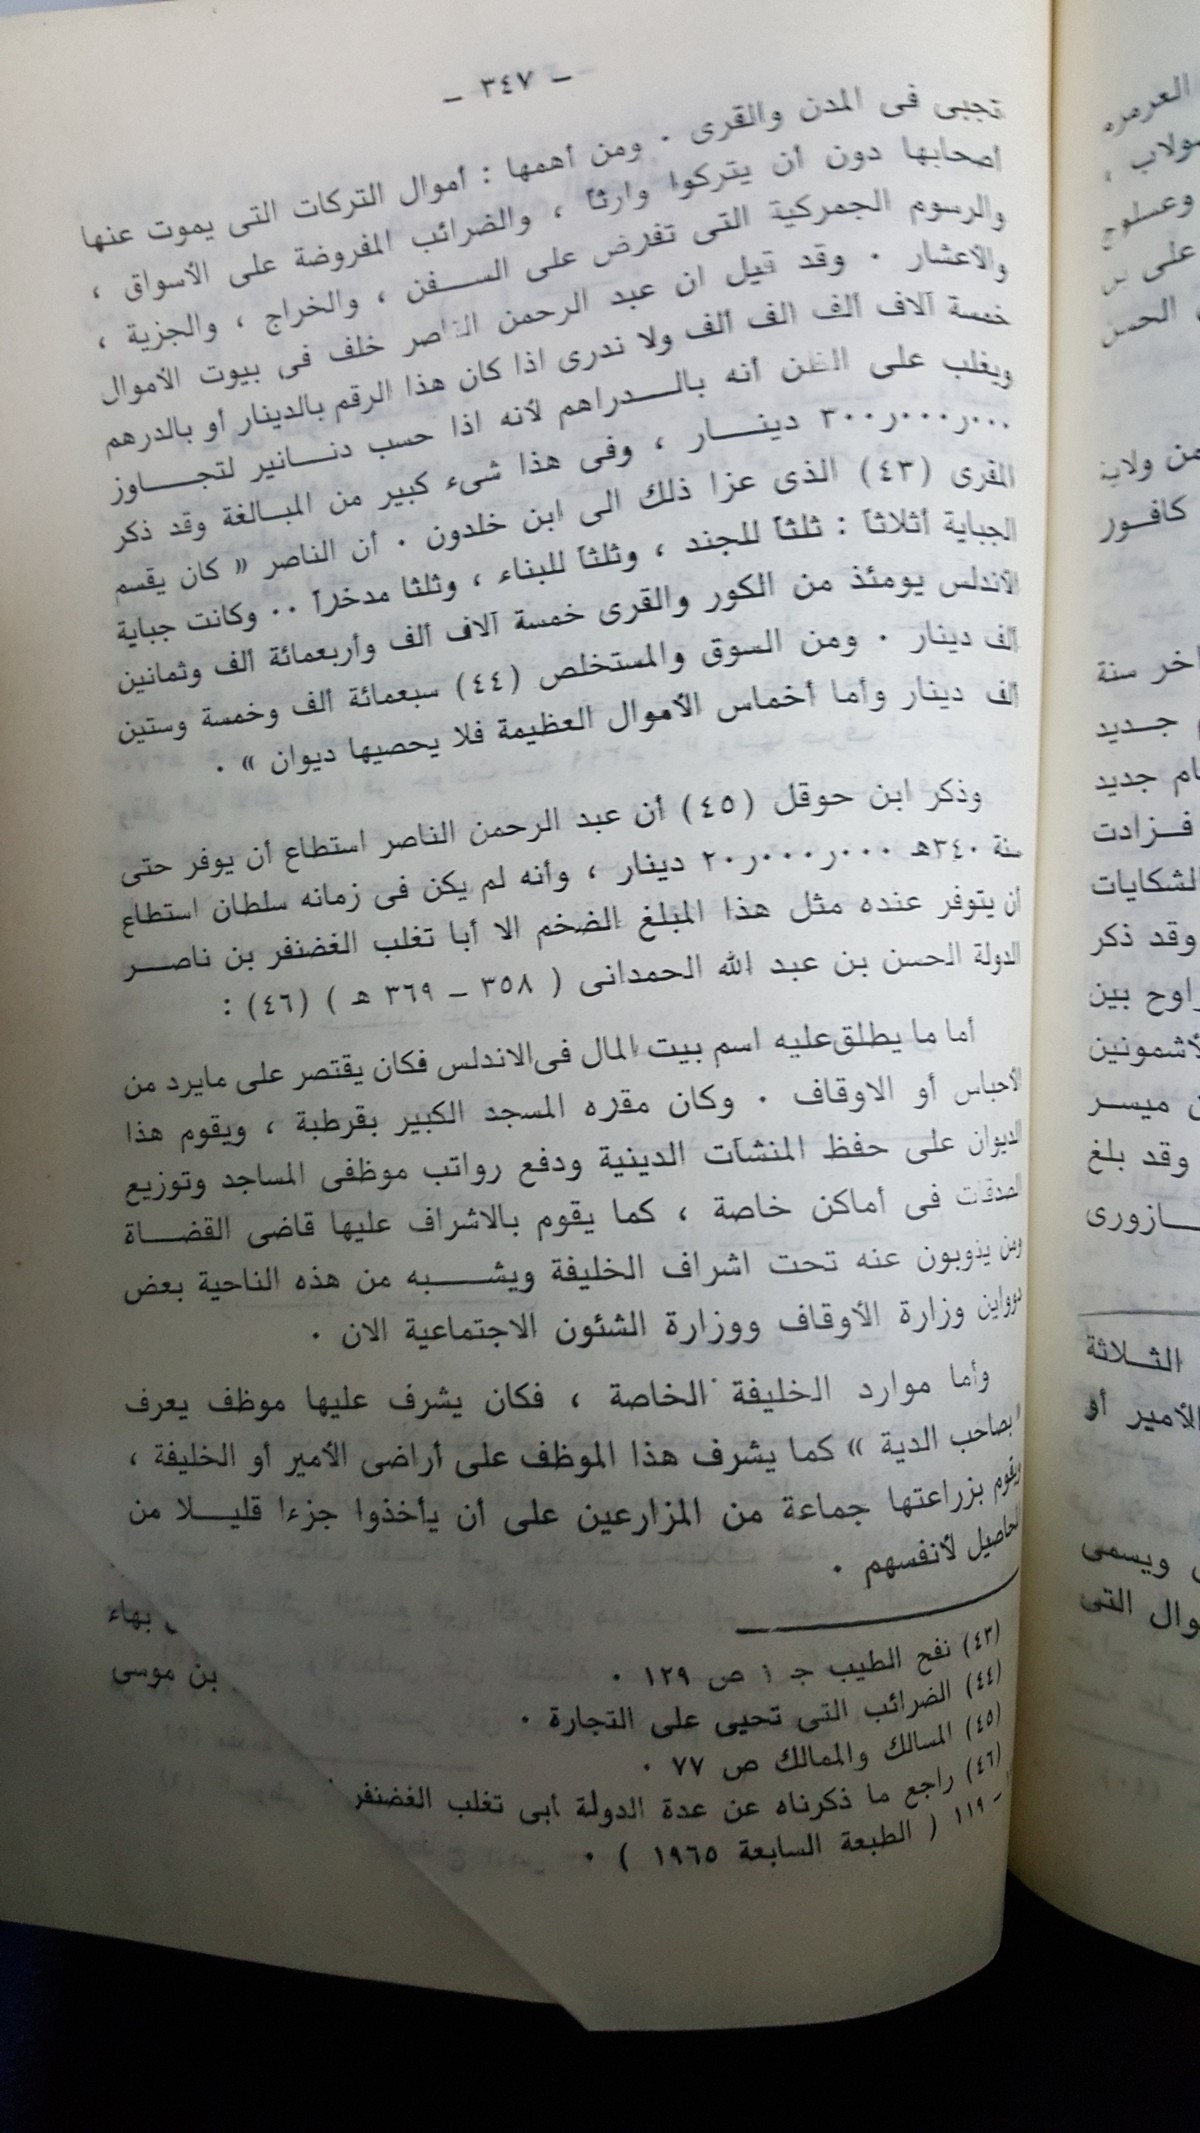 – ٣٤٧ –
تجبى فى المدن والقرى ٠ ومن أهمها : أموال التركات التى يموت عنها
أصحابها دون أن يتركوا وارثاً ، والضرائب المفروضة على الأسواق ،
والرسوم الجمركية التى تفرض على السفن ، والخراج ، والجزية ،
والاعشار ٠ وقد قيل ان عبد الرحمن الناصر خلف فى بيوت الأموال
خمسة آلاف ألف الف ألف ولا ندرى اذا كان هذا الرقم بالدينار أو بالدرهم
ويغلب على الظن أنه بالدراهم لأنه اذا حسب دنانير لتجاوز
٣٠٠ر٠٠٠ر٠٠٠ دينار ، وفى هذا شىء كبير من المبالغة وقد ذكر
المقرى (٤٣) الذى عزا ذلك الى ابن خلدون ٠ أن الناصر « كان يقسم
الجباية أثلاثاً : ثلثاً للجند ، وثلثاً للبناء ، وثلثا مدخراً ٠٠ وكانت جباية
الأندلس يومئذ من الكور والقرى خمسة آلاف ألف وأربعمائة ألف وثمانين
ألف دينار ٠ ومن السوق والمستخلص (٤٤) سبعمائة ألف وخمسة وستين
ألف دينار وأما أخماس الأموال العظيمة فلا يحصيها ديوان » ٠
وذكر ابن حوقل (٤٥) أن عبد الرحمن الناصر استطاع أن يوفر حتى
سنة ٣٤٠هـ ٢٠ر٠٠٠ر٠٠٠ دينار ، وأنه لم يكن فى زمانه سلطان استطاع
أن يتوفر عنده مثل هذا المبلغ الضخم الا أبا تغلب الغضنفر بن ناصر
الدولة الحسن بن عبد الله الحمدانى ( ٣٥٨ – ٣٦٩ هـ ) (٤٦) :
أما ما يطلق عليه اسم بيت المال فى الاندلس فكان يقتصر على مايرد من
الأحباس أو الاوقاف ٠ وكان مقره المسجد الكبير بقرطبة ، ويقوم هذا
الديوان على حفظ المنشآت الدينية ودفع رواتب موظفى المساجد وتوزيع
الصدقات فى أماكن خاصة ، كما يقوم بالاشراف عليها قاضى القضاة
ومن ينوبون عنه تحت اشراف الخليفة ويشبه من هذه الناحية بعض
دواوين وزارة الأوقاف ووزارة الشئون الاجتماعية الان ٠
وأما موارد الخليفة الخاصة ، فكان يشرف عليها موظف يعرف
« بصاحب الدية » كما يشرف هذا الموظف على أراضى الأمير أو الخليفة ،
ويقوم بزراعتها جماعة من المزارعين على أن يأخذوا جزءا قليلا من
الحاصيل لأنفسهم ٠
(٤٣) نفح الطيب جـ ١ ص ١٢٩ ٠
(٤٤) الضرائب التى تحيى على التجارة ٠
(٤٥) المسالك والممالك ص ٧٧ ٠
(٤٦) راجع ما ذكرناه عن عدة الدولة أبى تغلب الغضنفر
– ١١٩ ( الطبعة السابعة ١٩٦٥ ) ٠
بهاء
بن موسى
العرمره
وعسلوج
على بن
الحسن
من ولاية
كافور
اخر سنة
جديد
جديد
فزادت
الشكايات
وقد ذكر
بين
الأشمونين
ميسر
وقد بلغ
ازورى
الثلاثة
الأمير أو
ويسمى
التى